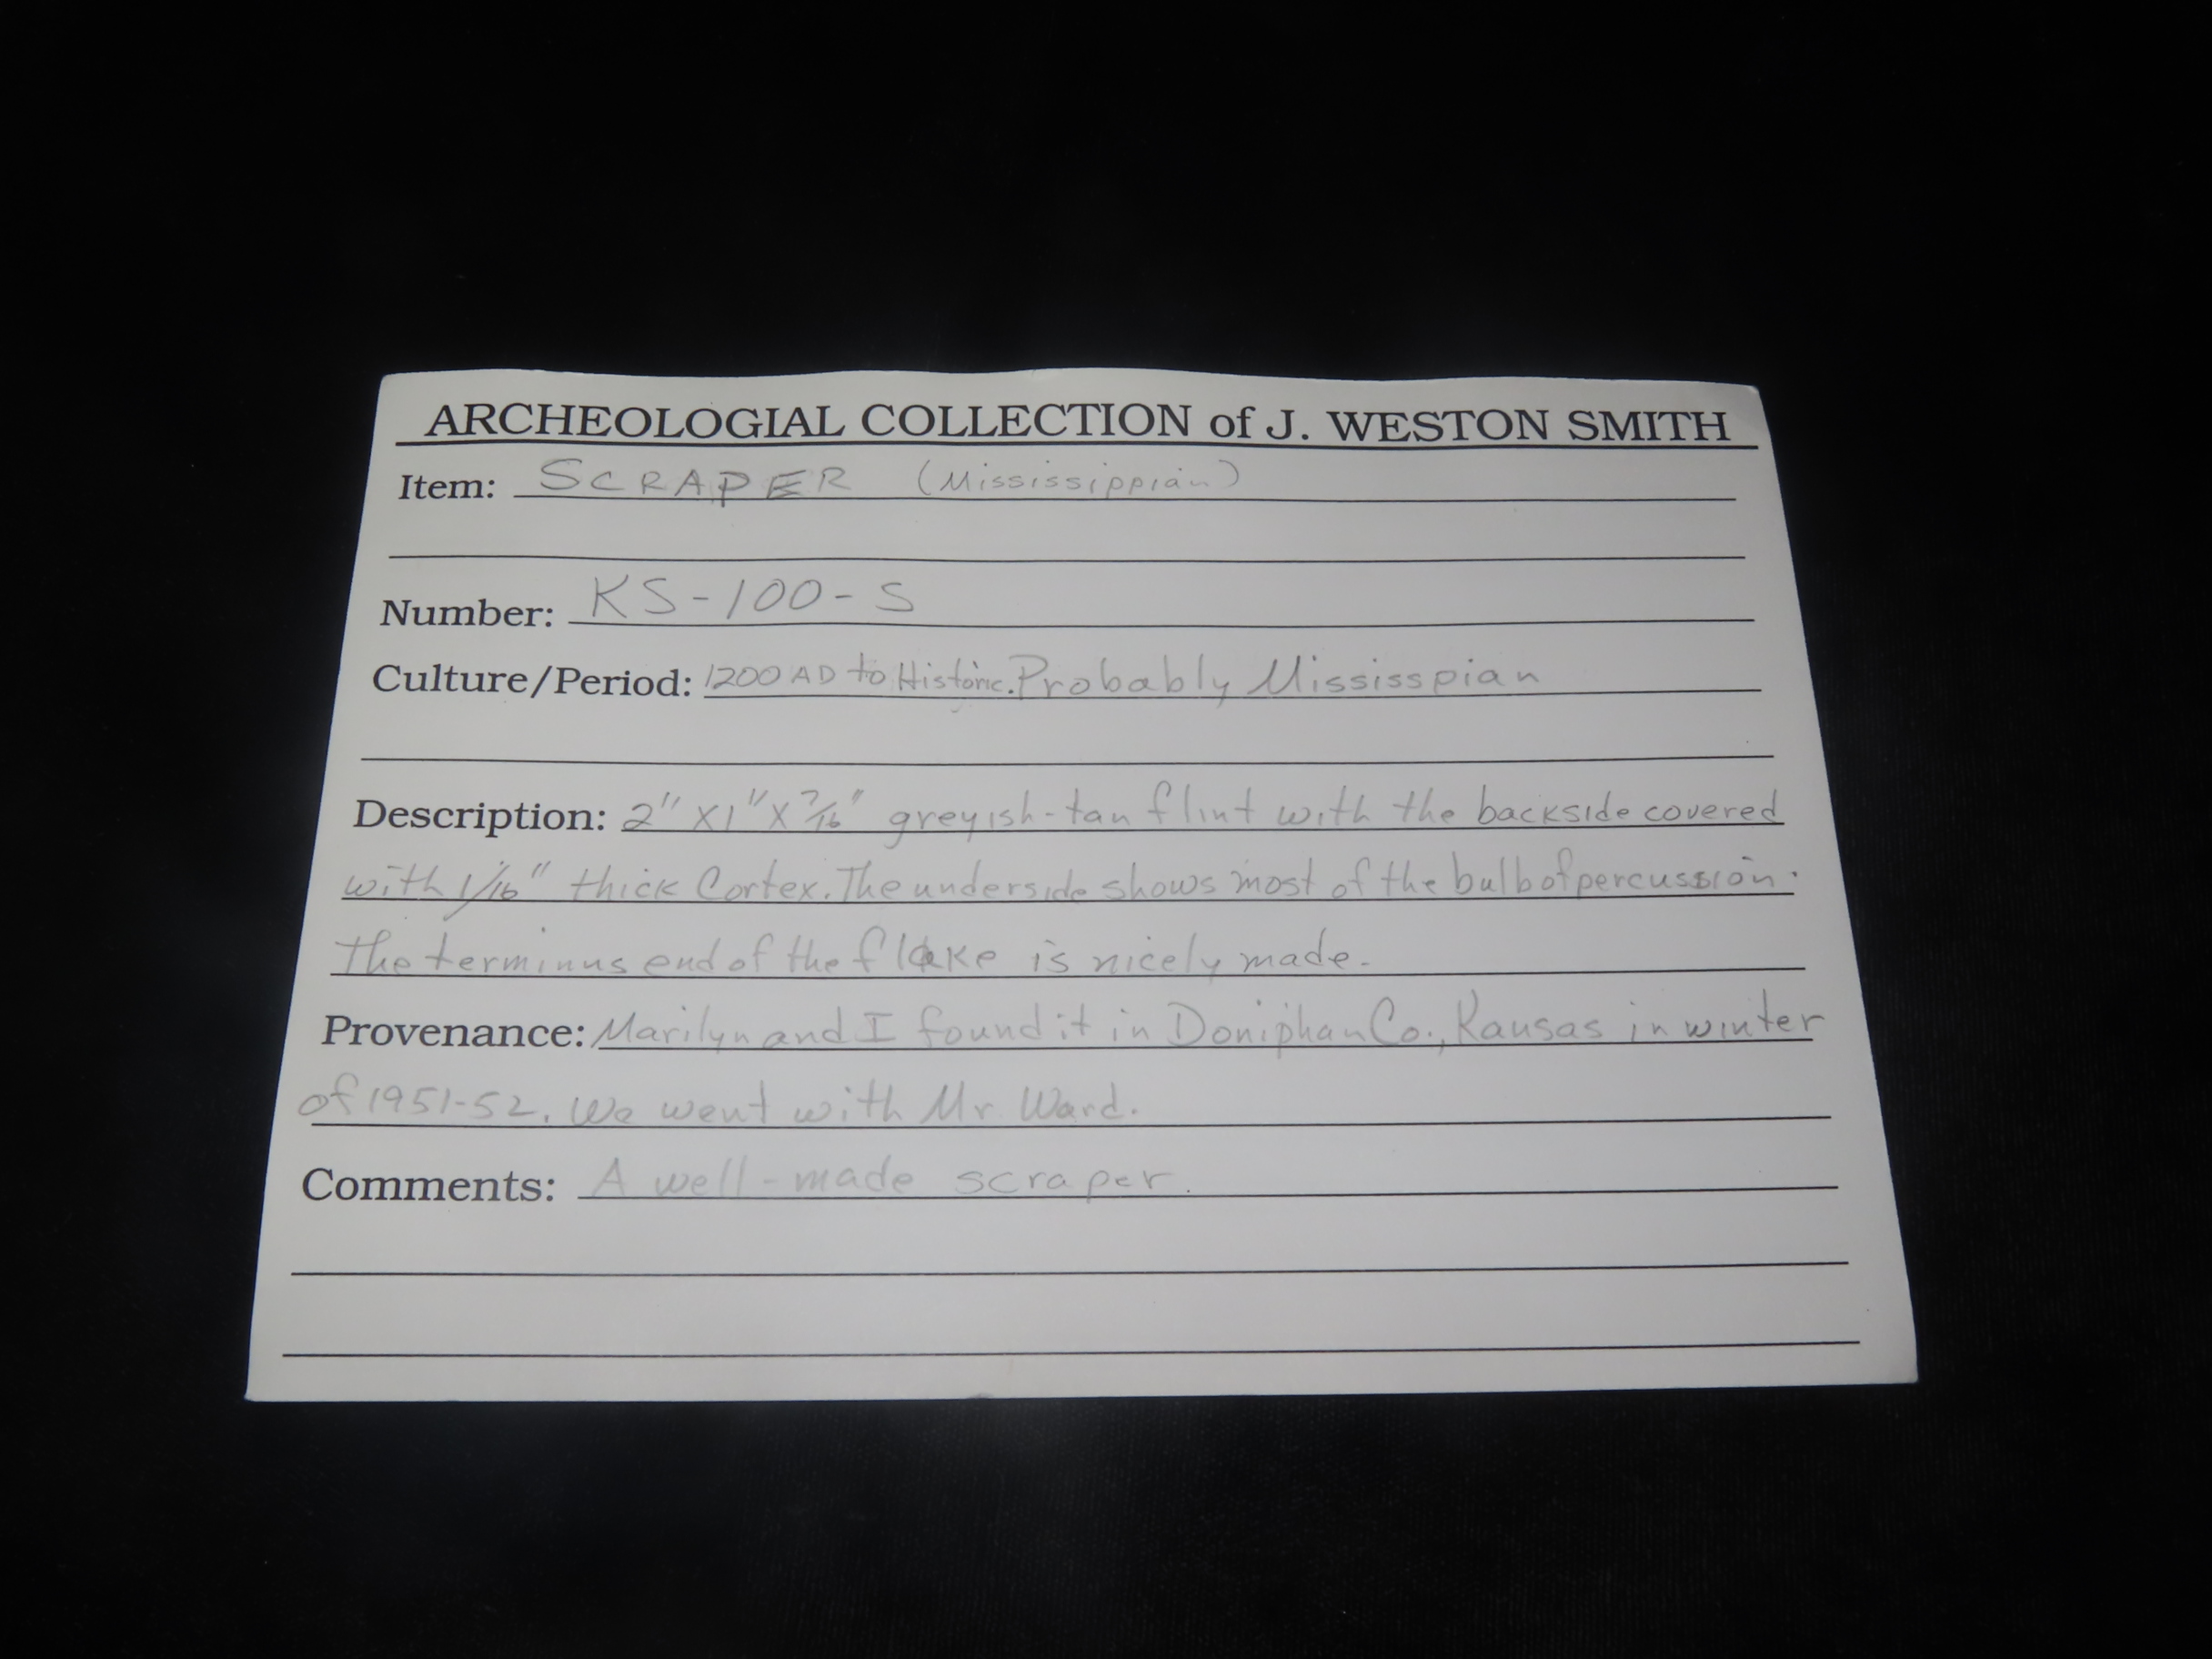 ARCHEOLOGIAL COLLECTION of J. WESTON SMITH
Item: SCRAPER (Mississippian)
Number: KS-100-S
Culture/Period: 1200 AD to Historic. Probably Mississpian
Description: 2" X 1" X 7/16" greyish-tan flint with the backside covered
with 1/16" thick Cortex. The underside shows most of the bulb of percussion.
The terminus end of the flake is nicely made.
Provenance: Marilyn and I found it in Doniphan Co., Kansas in winter
of 1951-52. We went with Mr Ward.
Comments: A well-made scraper.